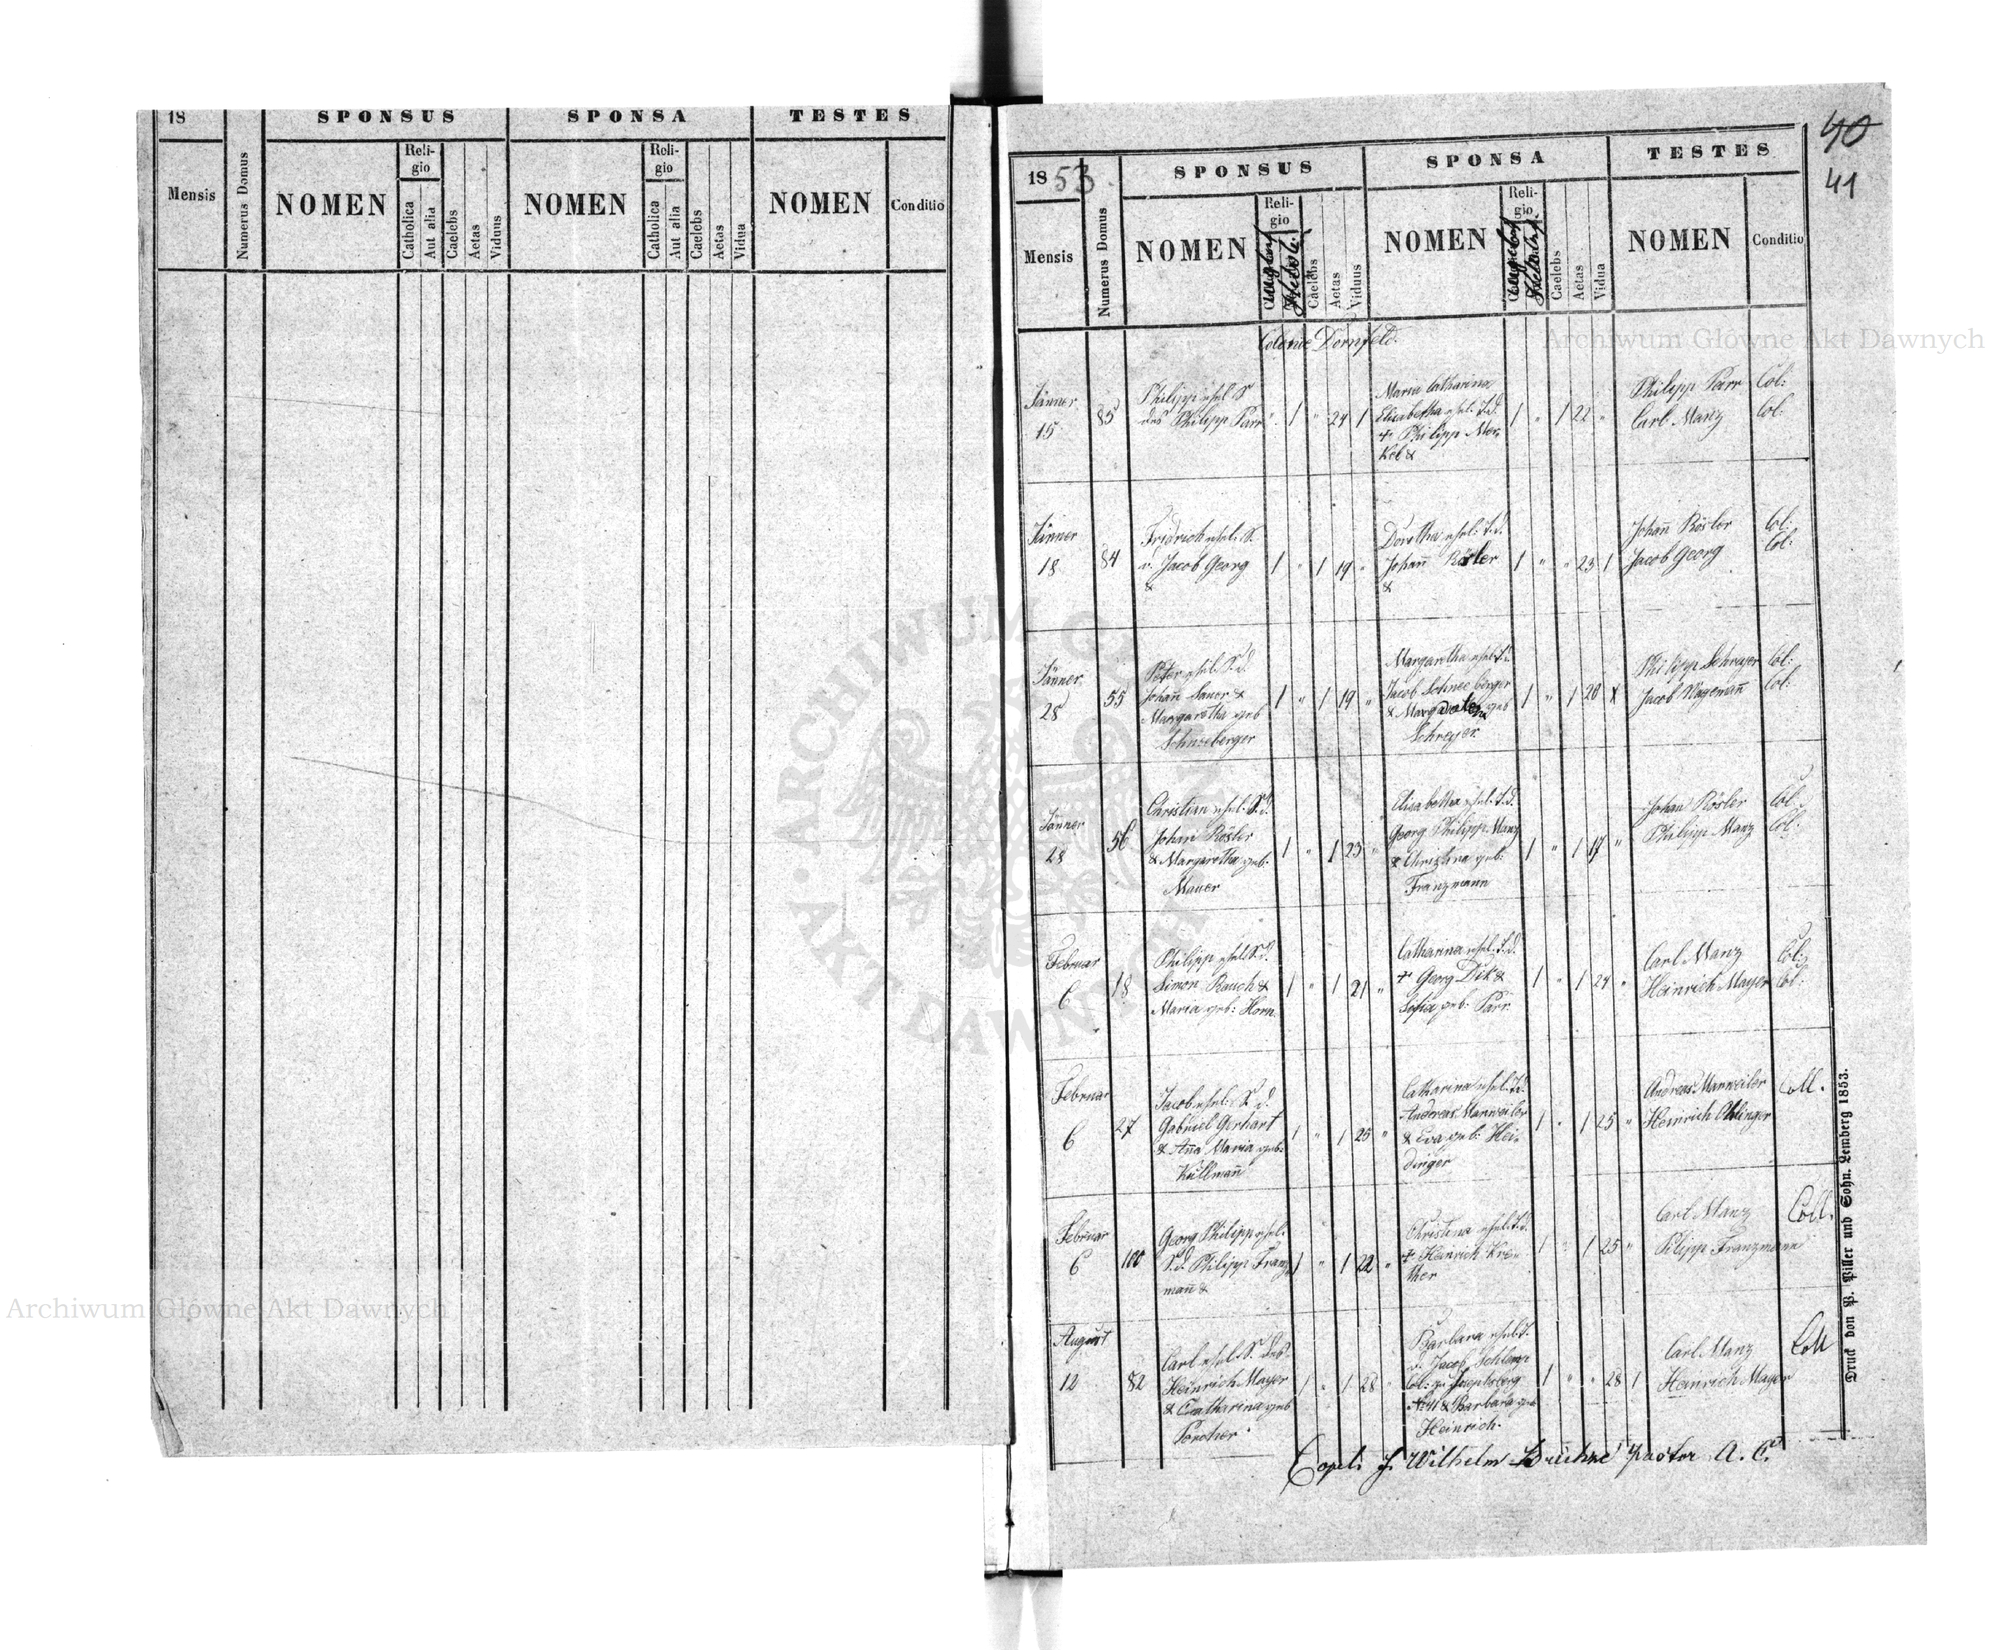 18
SPONSUS
SPONSA
TESTES
Mensis
Numerus Domus
NOMEN
Reli-
gio
Catholica
Aut alia
Caelebs
Aetas
Viduus
NOMEN
Reli-
gio
Catholica
Aut alia
Caelebs
Aetas
Vidua
NOMEN
Conditio
40
41
1853.
SPONSUS
SPONSA
TESTES
Mensis
Numerus Domus
NOMEN
Reli-
gio
Caelebs
Aetas
Viduus
NOMEN
Reli-
gio
Caelebs
Aetas
Vidua
NOMEN
Conditio
Colonie Dornfeld.
Jänner
15
85
Philipp ehel. S
des Philipp Parr
" 1 " 24 1
Maria Catharina
Elisabetha ehel. T.d.
+ Philipp Mer-
kel &
1 " 1 22 "
Philipp Parr Col:
Carl Manz Col:
Jänner
18
84
Fridrich ehel. S.
d. Jacob Georg
&
1 " 1 19 "
Dorotha ehel. T.d.
Johañ Rösler
&
1 " " 23 1
Johañ Rösler Col:
Jacob Georg Col:
Jänner
28
55
Peter ehel. S.d.
Johañ Sauer &
Margaretha geb
Schneeberger
1 " 1 19 "
Margaretha ehel. T.d.
Jacob Schneeberger
& geb
Schreyer.
1 " 1 20
Philipp Schrayer Col:
Jacob Wagemañ Col:
Jänner
28
56
Christian ehel. S.d.
Johañ Rösler
& Margaretha geb.
Mauer
1 " 1 23 "
Elisabetha ehel. T.d.
Georg Philipp Manz
& Christina geb:
Franzmann
1 " 1 17 "
Johan Rösler Col.
Philipp Manz Col:
Februar
6
18
Philipp ehel. S.d.
Simon Rauch &
Maria geb: Horn.
1 " 1 21 "
Catharina ehel. T.d.
+ Georg Dik &
Sofia geb: Parr.
1 " 1 24 "
Carl Manz Col:
Heinrich Mayer Col:
Februar
6
27
Jacob ehel. S. d.
Gabriel Gerhart
& Aña Maria geb:
Küllmañ
1 " 1 25 "
Catharina ehel. T.d.
Andreas Manweiler
& Eva geb: Hei-
dinger
1 " 1 25 "
Andreas Manweiler Coll.
Heinrich Ohlinger
Februar
6
100
Georg Philipp ehel.
S.d. Philipp Franz-
mañ &
1 " 1 22 "
Christina ehel. T.d.
+ Heinrich Krö-
ther
1 " 1 25 "
Carl Manz Coll.
Pilipp Franzmann
August
12
82
Carl ehel. S. des
Heinrich Mayer
& Catharina geb
1 " 1 28 "
Barbara ehel. T.
d. Jacob Schlamp
Col: zu
& Barbara geb
Heinrich.
1 " " 28 1
Carl Manz Coll
Heinrich Mayer
Copeli J. Wilhelm Brüchne Pastor A. C.
Druck von P. Piller und Sohn. Lemberg 1853.
Archiwum Główne Akt Dawnych
Archiwum Główne Akt Dawnych